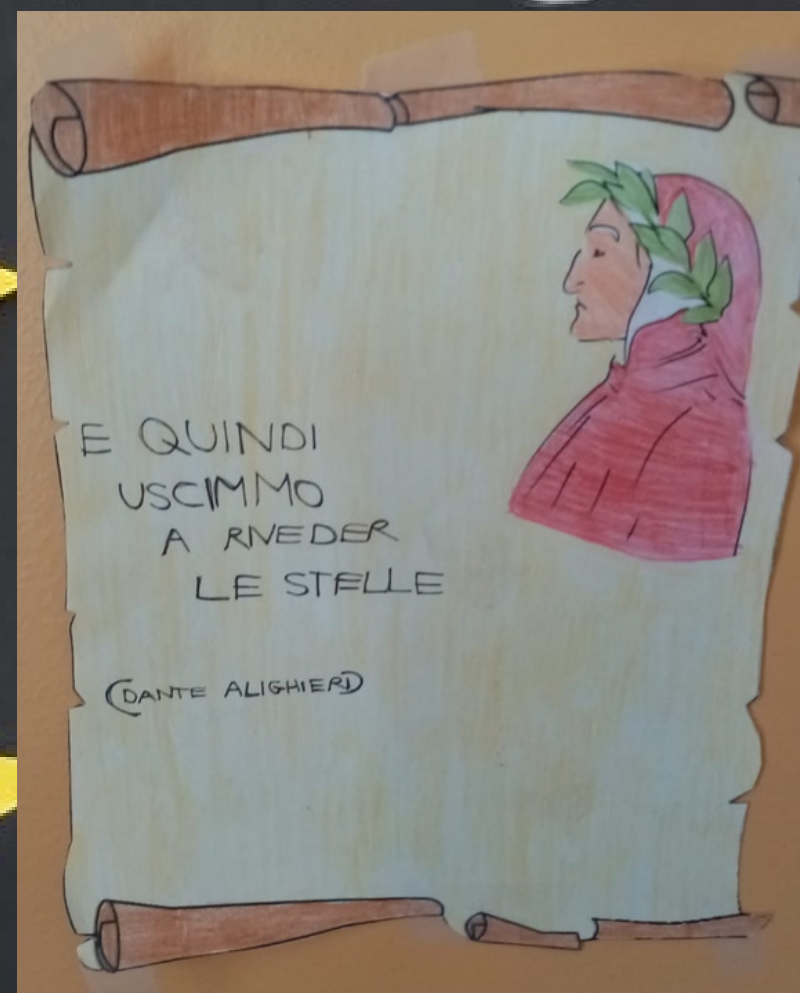 E QUINDI
USCIMMO
A RIVEDER
LE STELLE
(DANTE ALIGHIERI)